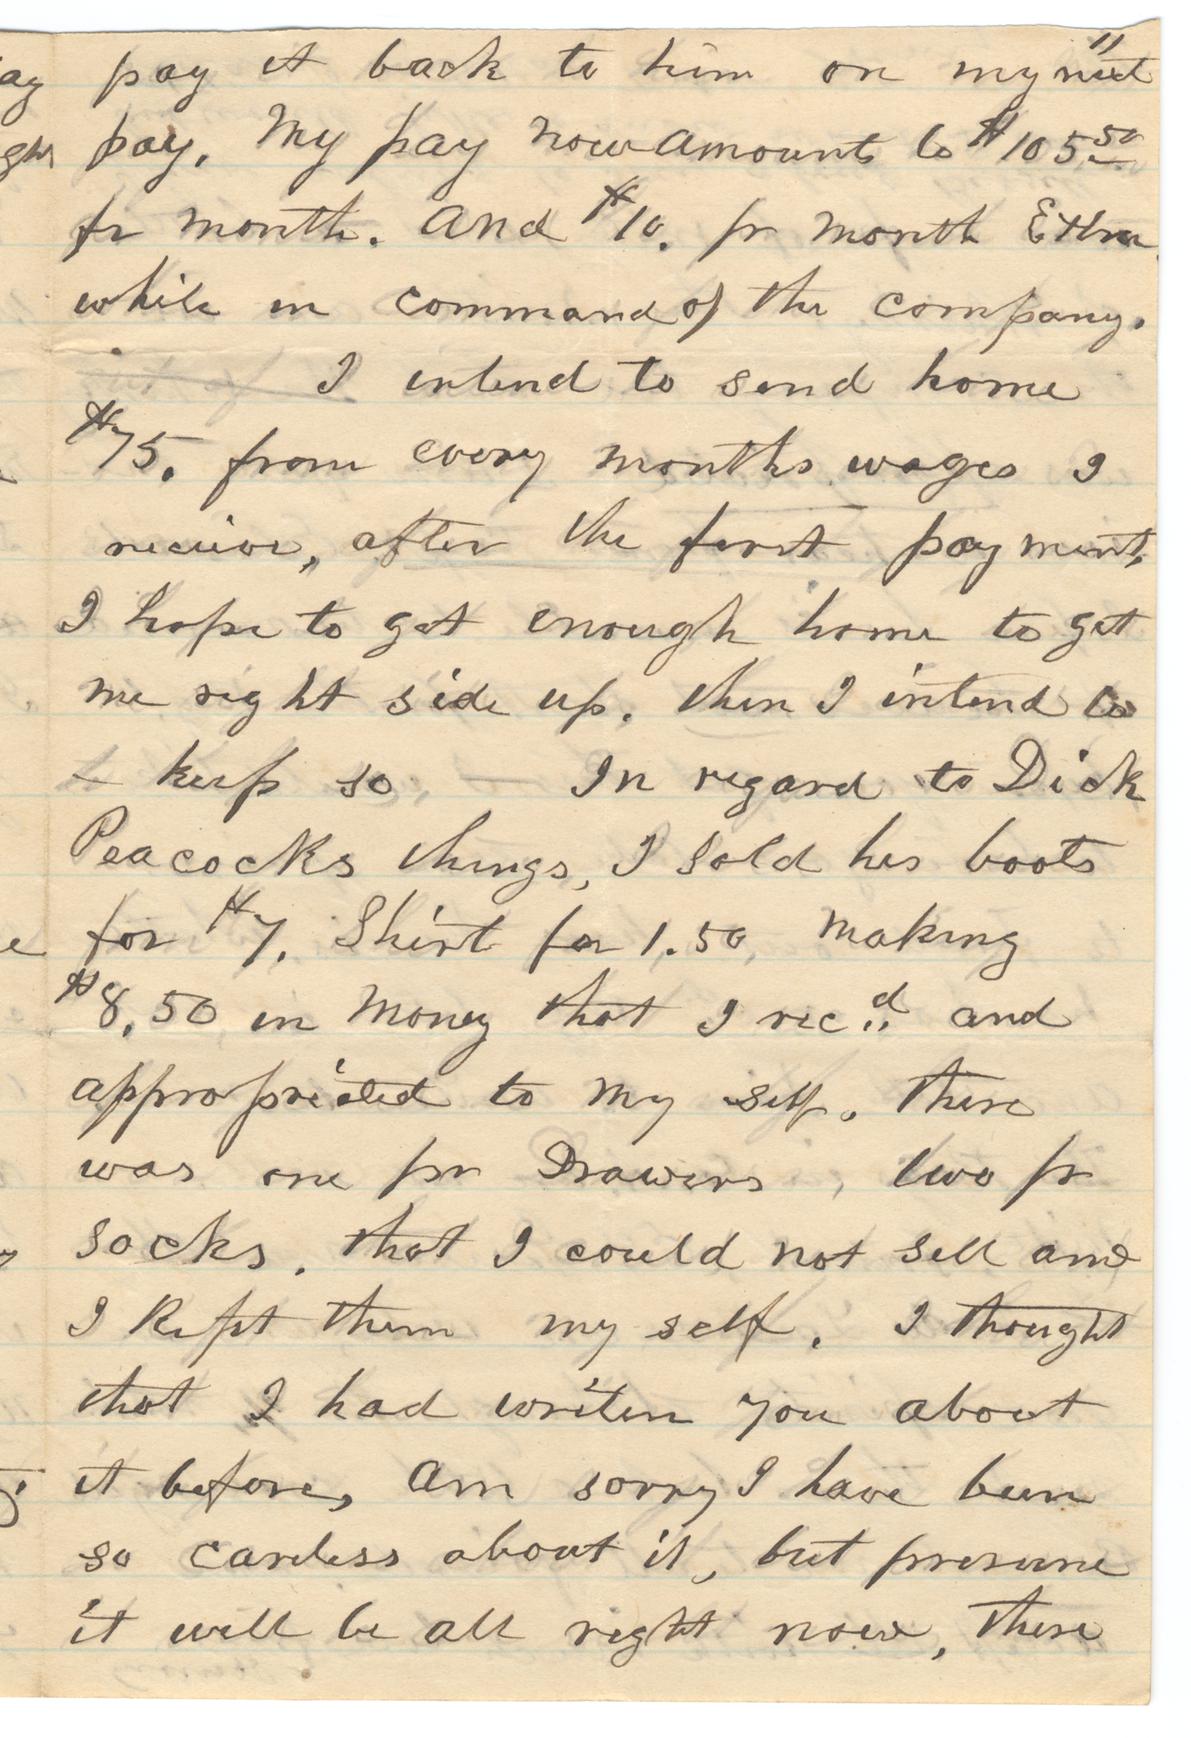 pay it back to him on my next
pay. My pay now amounts to $105.50
pr month. And $10. pr month Extra
while in command of the company.
I intend to send home
$75. from every months wages I
recieve, after the first payment,
I hope to get enough home to get
me right side up. then I intend to
keep so — In regard to Dick
Peacocks things, I sold his boots
for $7. Shirt for 1.50, making
$8,50 in money that I recd and
appropriated to my self. There
was one pr Drawers, two pr
socks. that I could not sell and
I Kept them my self. I thought
that I had writen you about
it before, am sorry I have been
so careless about it, but presume
it will be all right now, There